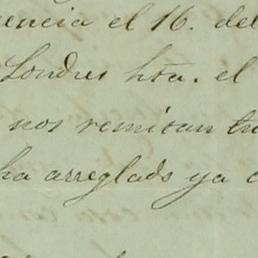 uencia el 16. del
Londres hta. el
nos remitan tu
ha arreglado ya